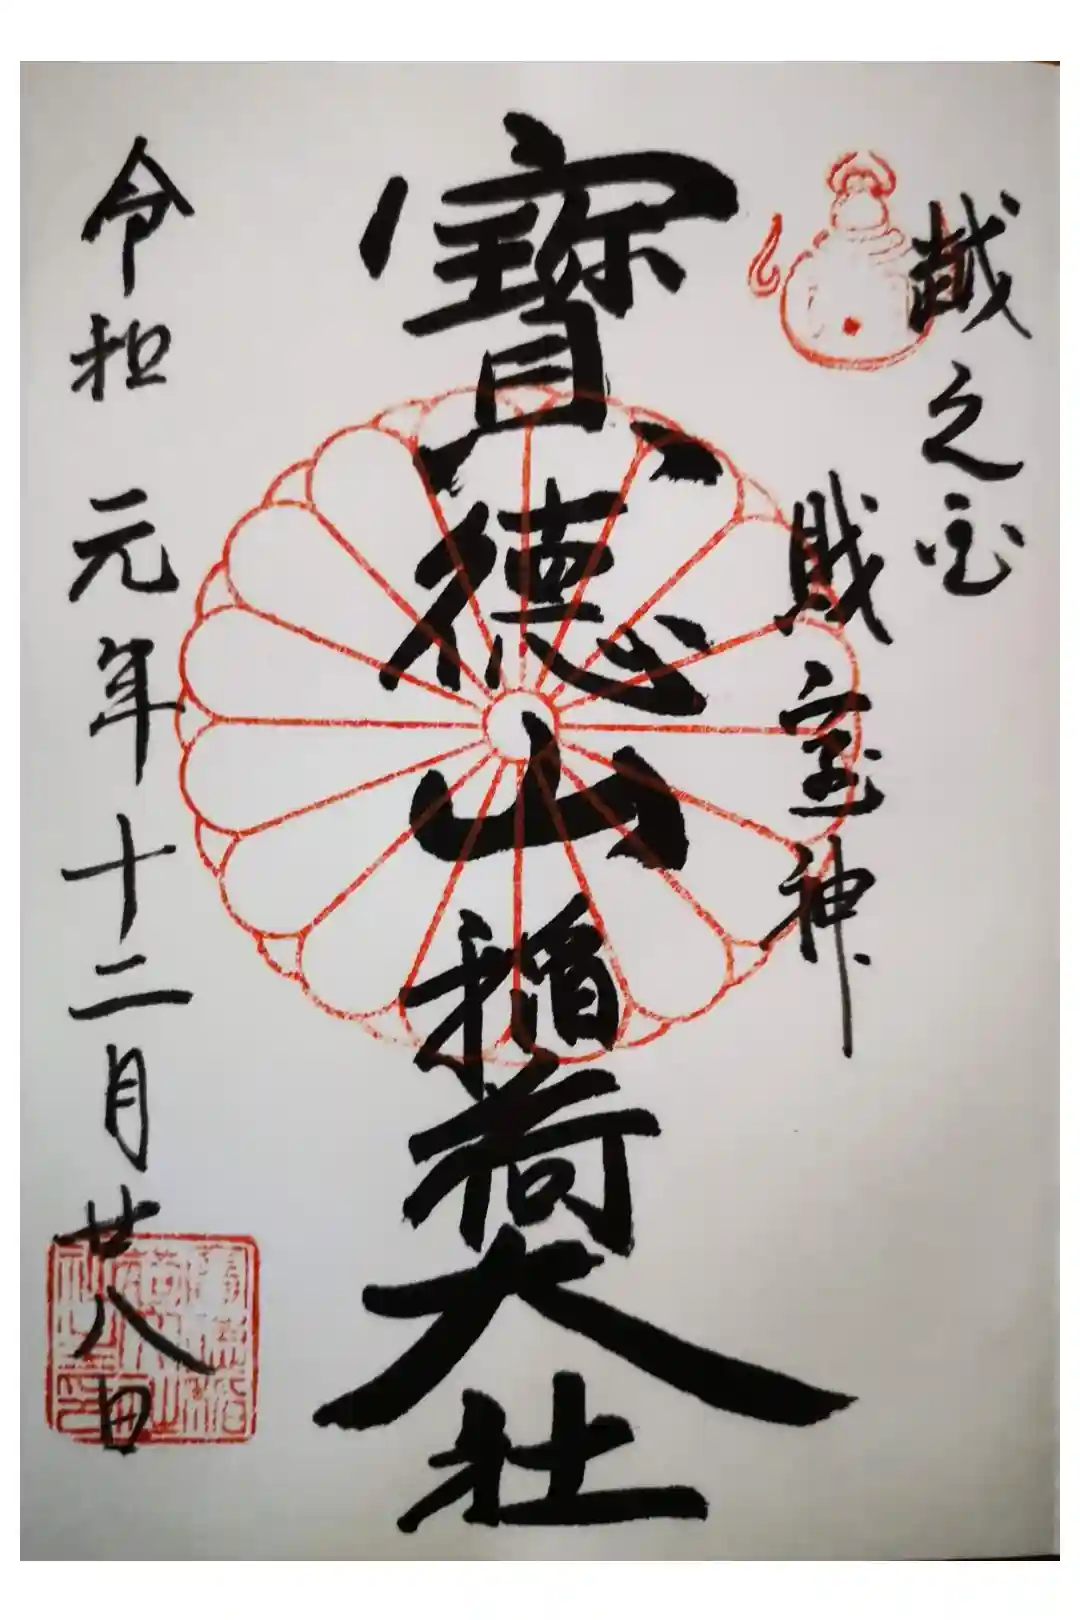 越之宝
財宝神
寳徳山稲荷大社
令和元年十二月廿八日